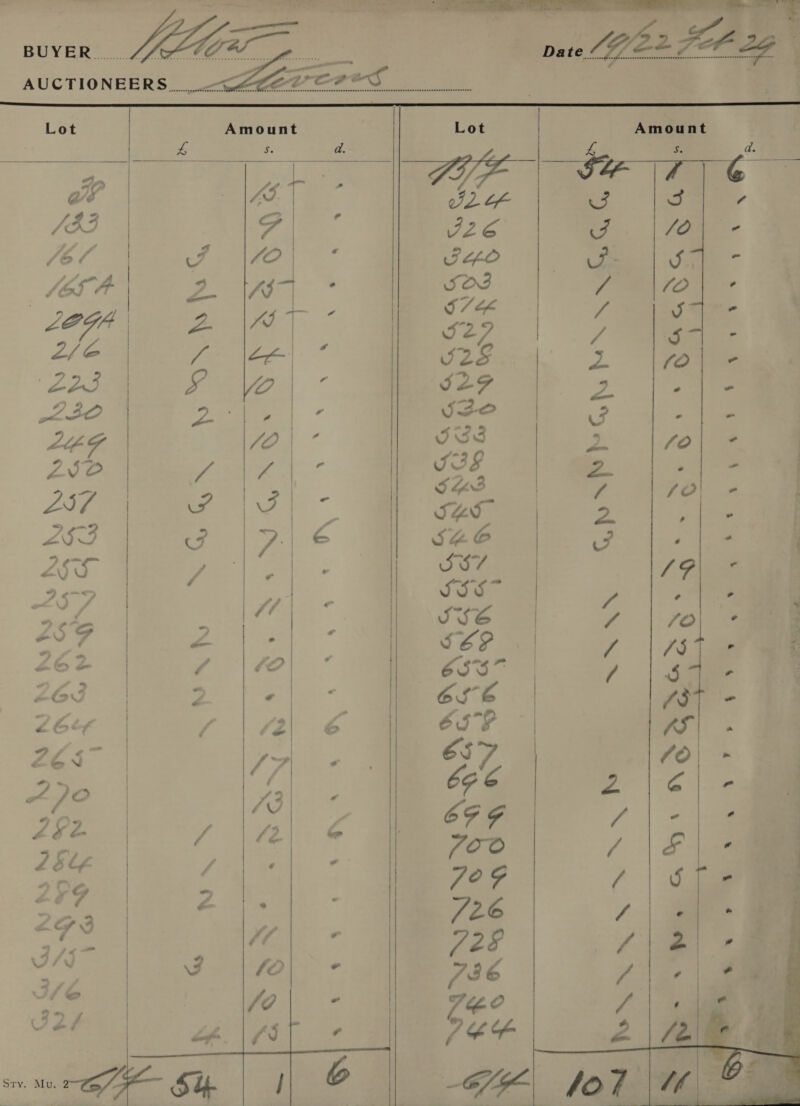 BUYER
Date 19/22 Feb 29
AUCTIONEERS Stevens
Lot Amount Lot Amount
£ s. d. £ s. d.
B/F 54 1 6
15 - - 324 3 3 -
133 9 - 326 3 10 -
161 3 10 - 340 3 5 -
165A 2 15 - 503 1 10 -
209A 2 15 - 514 1 5 -
216 1 4 - 527 1 5 -
223 8 10 - 528 2 10 -
230 2 - - 529 2 - -
249 10 - 530 3 - -
250 1 1 - 533 2 10 -
251 3 3 - 538 2 - -
253 3 7 6 543 1 10 -
255 1 - - 545 2 - -
257 11 - 546 3 - -
259 2 - - 551 19 -
262 1 10 - 555 1 - -
263 2 - - 556 1 10 -
264 1 12 6 568 1 15 -
265 17 - 655 1 5 -
270 13 - 656 15 -
282 1 12 6 658 15 -
284 1 - - 657 10 -
289 2 - - 696 2 6 -
293 11 - 699 1 - -
315 3 10 - 700 1 8 -
316 10 - 709 1 5 -
321 4 15 - 726 1 - -
728 1 2 -
736 1 - -
740 1 - -
744 2 12 -
Stv. Mu. 2 C/F 54 1 6 C/F 107 11 6